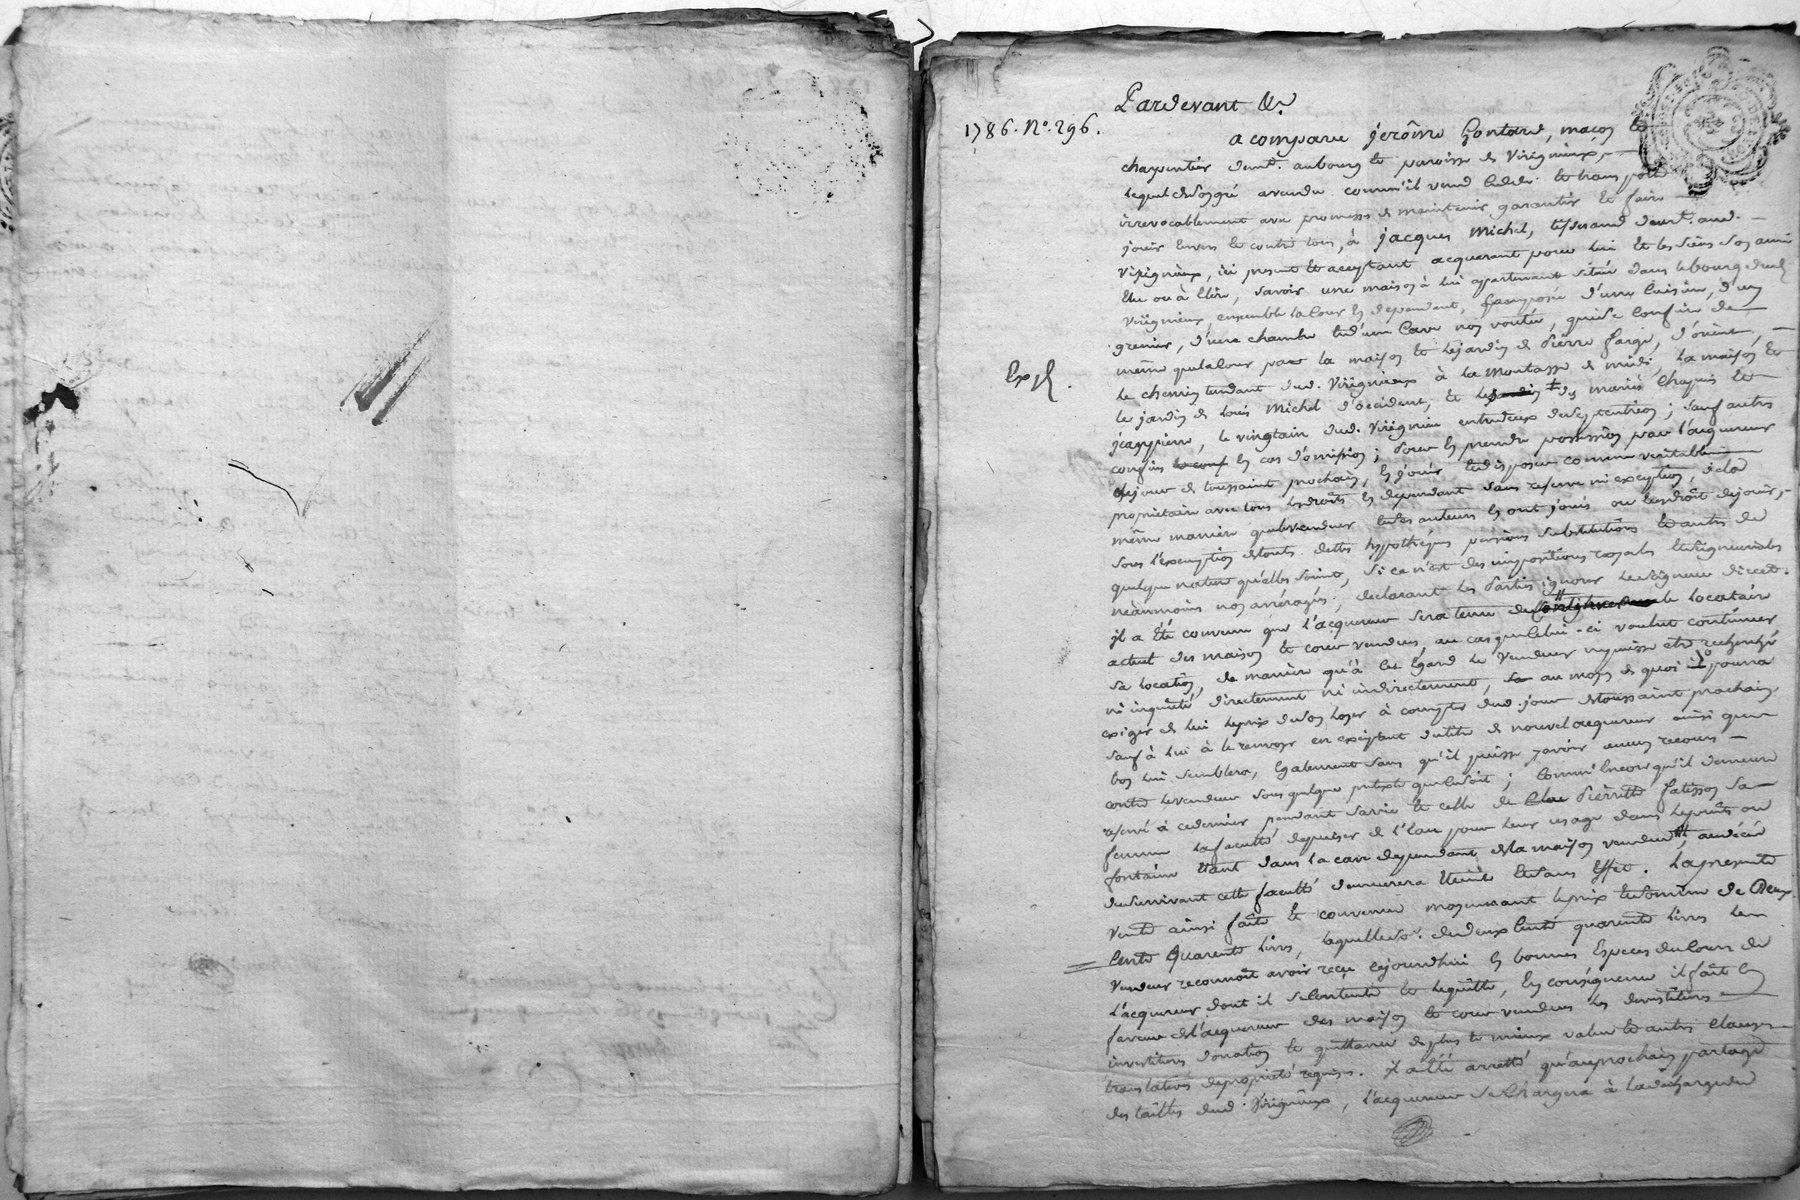 Pardevant &c.
1786. N°. 296.
a comparu jerôme Gontard, maçon et
charpentier demt. au bourg et paroisse de Virigneux,
lequel de son gré a vendu comm'il vend cede et transporte
irrevocablement avec promesse de maintenir garantir et faire
jouir envers et contre tous, à jacques Michel, tisserand demt. aud.
Virigneux, ici present et acceptant acquerant pour lui et les siens son ami
Elu ou à Elire, savoir une maison à lui appartenant située dans le bourg dud.
Virigneux ensemble la Cour en dependant, composée d'une Cuisine, d'un
grenier, d'une chambre et d'une Cave non voutée, qui se confine de
même que la Cour par la maison et le jardin de Pierre farge, d'orient,
Exp.
le chemin tendant dud. Virigneux à la Montasse de midi, la maison et
le jardin de louis Michel d'occident, et le des mariés Chapuis et
jeanpierre, le vingtain dud. Virigneux entredeux de septentrion; sauf autres
confins en cas d'omission; pour en prendre possession par l'acquereur
du jour de toussaint prochain, en jouir et disposer comme veritable
proprietaire avec tous les droits en dependant sans reserve ni exception, de la
même maniere que le vendeur et ses auteurs en ont joui ou eu droit de jouir,
sous l'exemption de toutes dettes hypotheques pensions substitutions et autres de
quelque nature qu'elles soient, si ce n'est des impositions royales et seigneuriales
néanmoins non arréragés; declarant les Parties ignorer le seigneur direct.
il a été convenu que l'acquereur sera tenu de le locataire
actuel des maison et cour vendues, au cas que celui-ci voulut continuer
sa location, de maniere qu'à cet Egard le vendeur ne puisse etre recherché
ni inquiété directement ni indirectement, au moyen de quoi il pourra
exiger de lui le prix de son loyer à compter dud. jour de toussaint prochain,
sauf à lui à le renvoyer en excipant du titre de nouvel acquereur ainsi que
bon lui semblera, Egalement sans qu'il puisse y avoir aucun recours
contre le vendeur sous quelque pretexte que ce soit; Comm'Encore qu'il demeure
reservé à ce dernier pendant sa vie et celle de Pierrette fatisson sa
femme la faculté de puiser de l'Eau pour leur usage dans le puits ou
fontaine Etant dans la cave dependant de la maison vendue, au décès
du survivant cette faculté demeurera Eteinte et sans Effet. La presente
vente ainsi faite et convenue moyennant le prix et somme de Deux
Cents Quarante livres, laquelle so. de deux cents quarante livres le
vendeur reconnoit avoir reçu cejourdhui en bonnes Especes du Cours de
l'acquereur dont il se Contente et le quitte, En consequence il fait en
faveur de l'acquereur des maison et cour vendues les devestitures
investitures donation et quittance de plus et mieux value et autres Clauses
translatives de propriété requises. il a été arretté qu'au prochain partage
des tailles dud. Virigneux, l'acquereur se Chargera à la décharge du